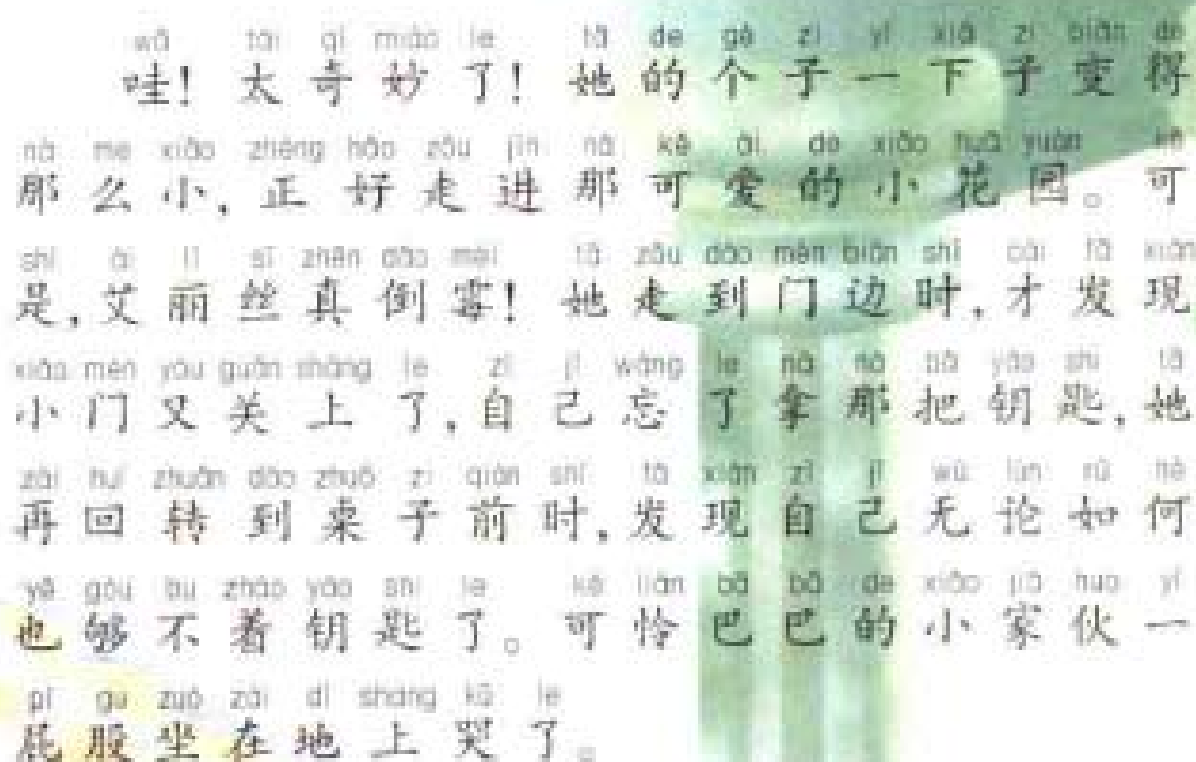 wā tài qí miào le tā de gè zi yí xià zi biàn de
哇！太奇妙了！她的个子一下子变得
nà me xiǎo zhèng hǎo zǒu jìn nà kě ài de xiǎo huā yuán kě
那么小，正好走进那可爱的小花园。可
shì ài lì sī zhēn dǎo méi tā zǒu dào mén biān shí cái fā xiàn
是，艾丽丝真倒霉！她走到门边时，才发现
xiǎo mén yòu guān shàng le zì jǐ wàng le ná nà bǎ yào shi tā
小门又关上了，自己忘了拿那把钥匙，她
zài huí zhuǎn dào zhuō zi qián shí fā xiàn zì jǐ wú lùn rú hé
再回转到桌子前时，发现自己无论如何
yě gòu bu zháo yào shi le kě lián bā bā de xiǎo jiā huo yí
也够不着钥匙了。可怜巴巴的小家伙一
pì gu zuò zài dì shang kū le
屁股坐在地上哭了。